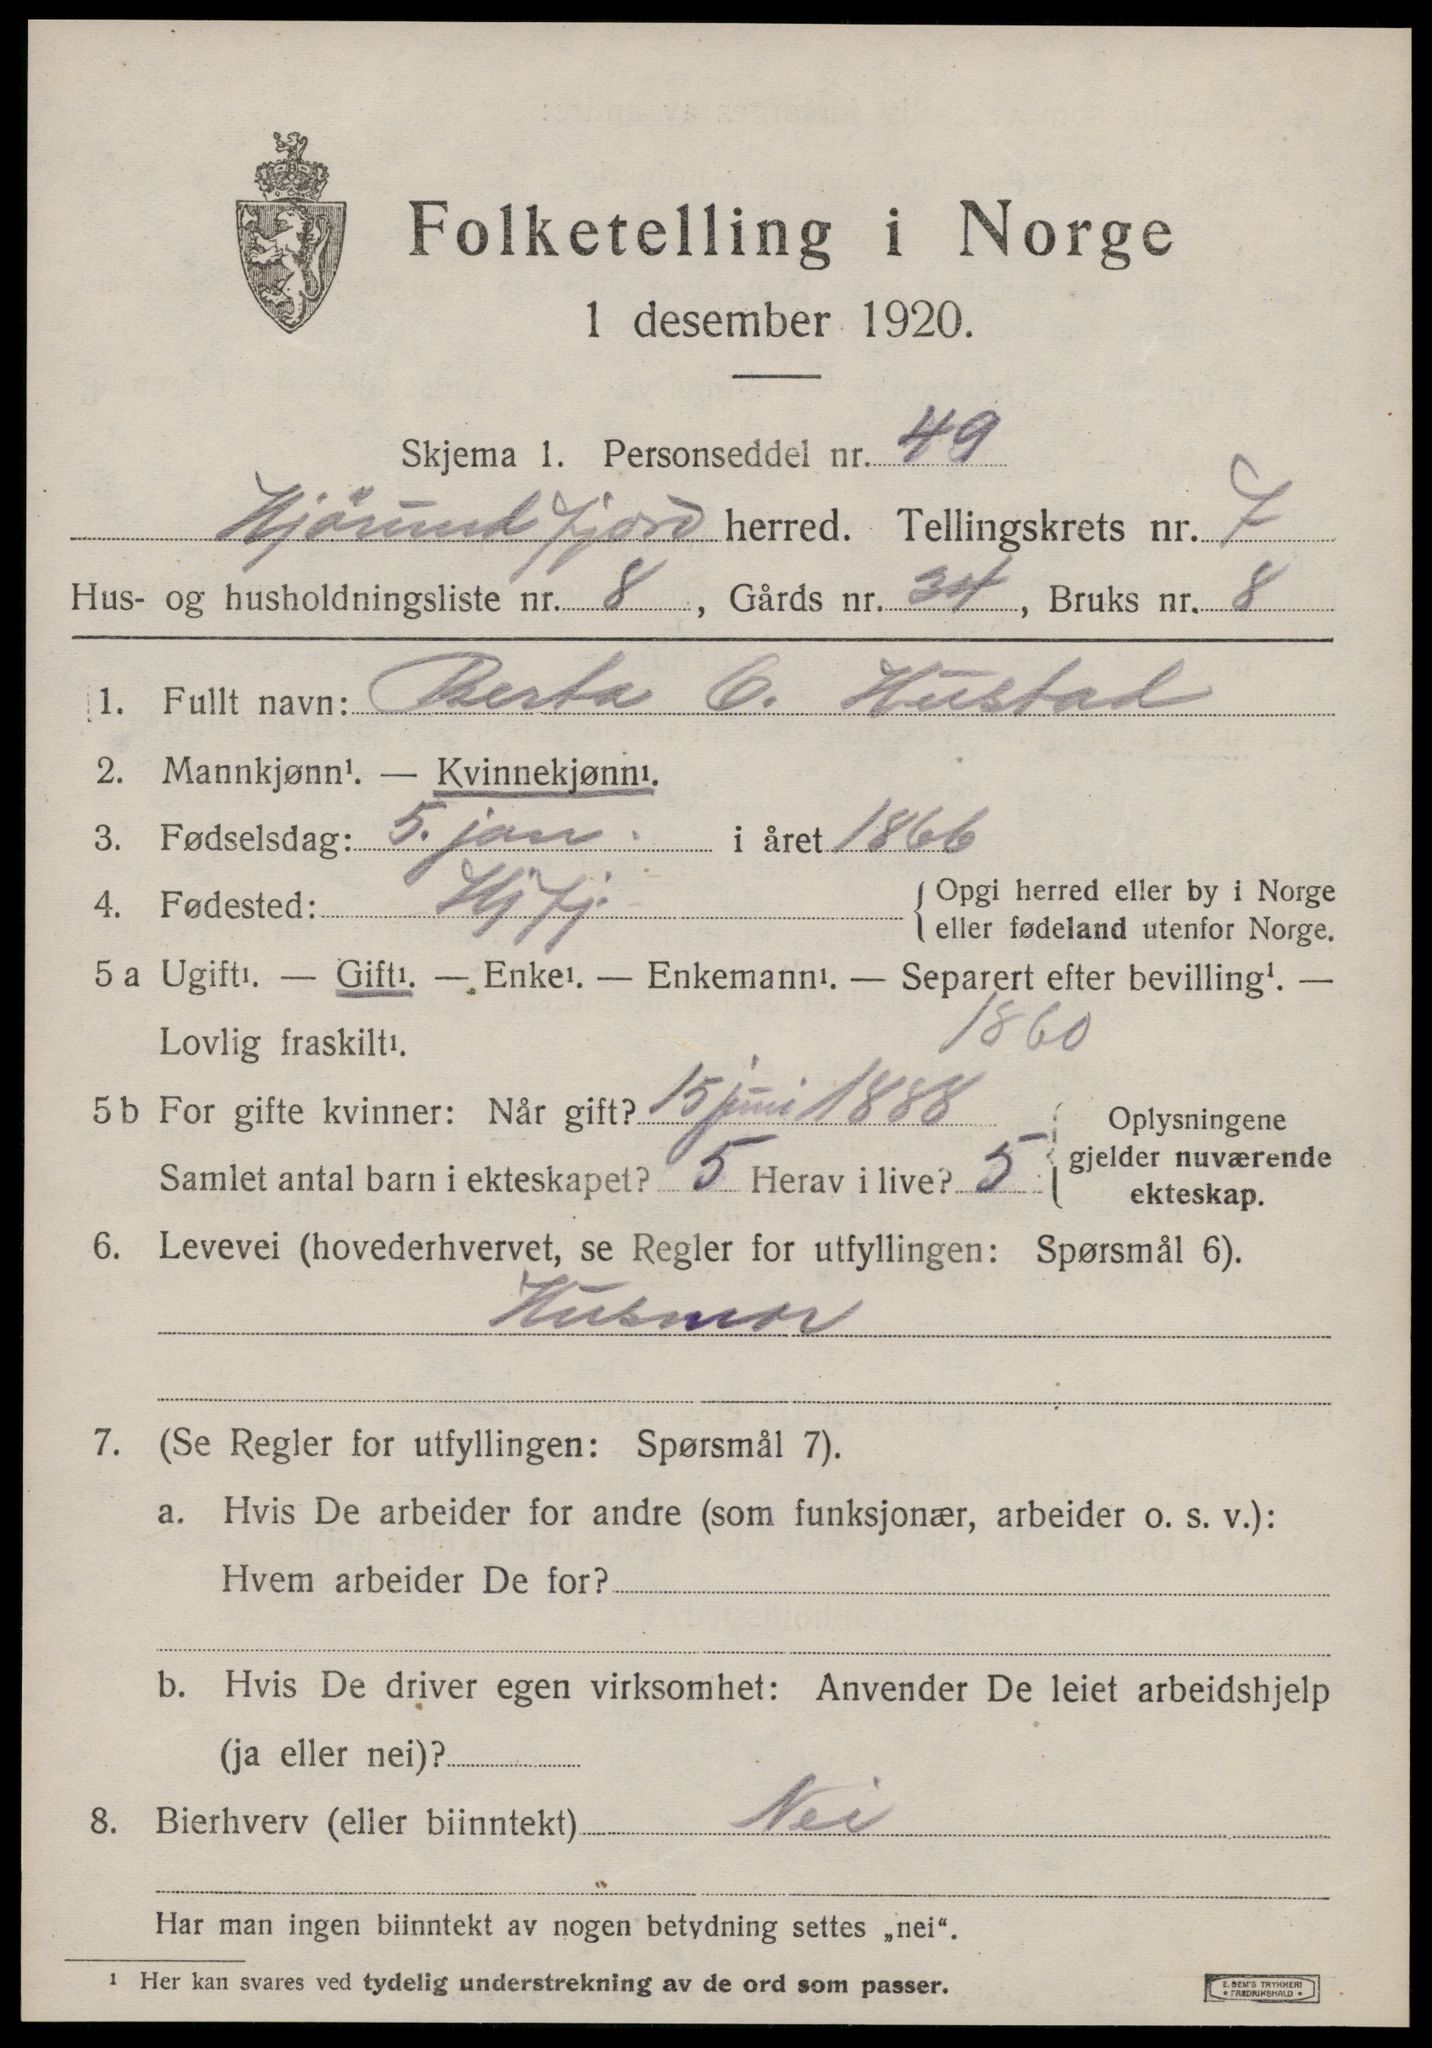 Folketelling i Norge
1 desember 1920.
Skjema 1. Personseddel nr. 49
Hjörundfjord herred. Tellingskrets nr. 7
Hus- og husholdningsliste nr. 8, Gårds nr. 34, Bruks nr. 8
1. Fullt navn: Berta O. Hustad
2. Mannkjønn¹. — Kvinnekjønn¹.
3. Fødselsdag: 5. jan. i året 1866
4. Fødested: Hjfj. { Opgi herred eller by i Norge
eller fødeland utenfor Norge.
5 a Ugift¹. — Gift¹. — Enke¹. — Enkemann¹. — Separert efter bevilling¹. —
Lovlig fraskilt¹. 1860
5 b For gifte kvinner: Når gift? 15 juni 1888 { Oplysningene
gjelder nuværende
Samlet antal barn i ekteskapet? 5 Herav i live? 5 ekteskap.
6. Levevei (hovederhvervet, se Regler for utfyllingen: Spørsmål 6).
Husmor
7. (Se Regler for utfyllingen: Spørsmål 7).
a. Hvis De arbeider for andre (som funksjonær, arbeider o. s. v.):
Hvem arbeider De for?
b. Hvis De driver egen virksomhet: Anvender De leiet arbeidshjelp
(ja eller nei)?
8. Bierhverv (eller biinntekt) Nei
Har man ingen biinntekt av nogen betydning settes „nei“.
¹ Her kan svares ved tydelig understrekning av de ord som passer.
E. SEM'S TRYKKERI
• FREDRIKSHALD •